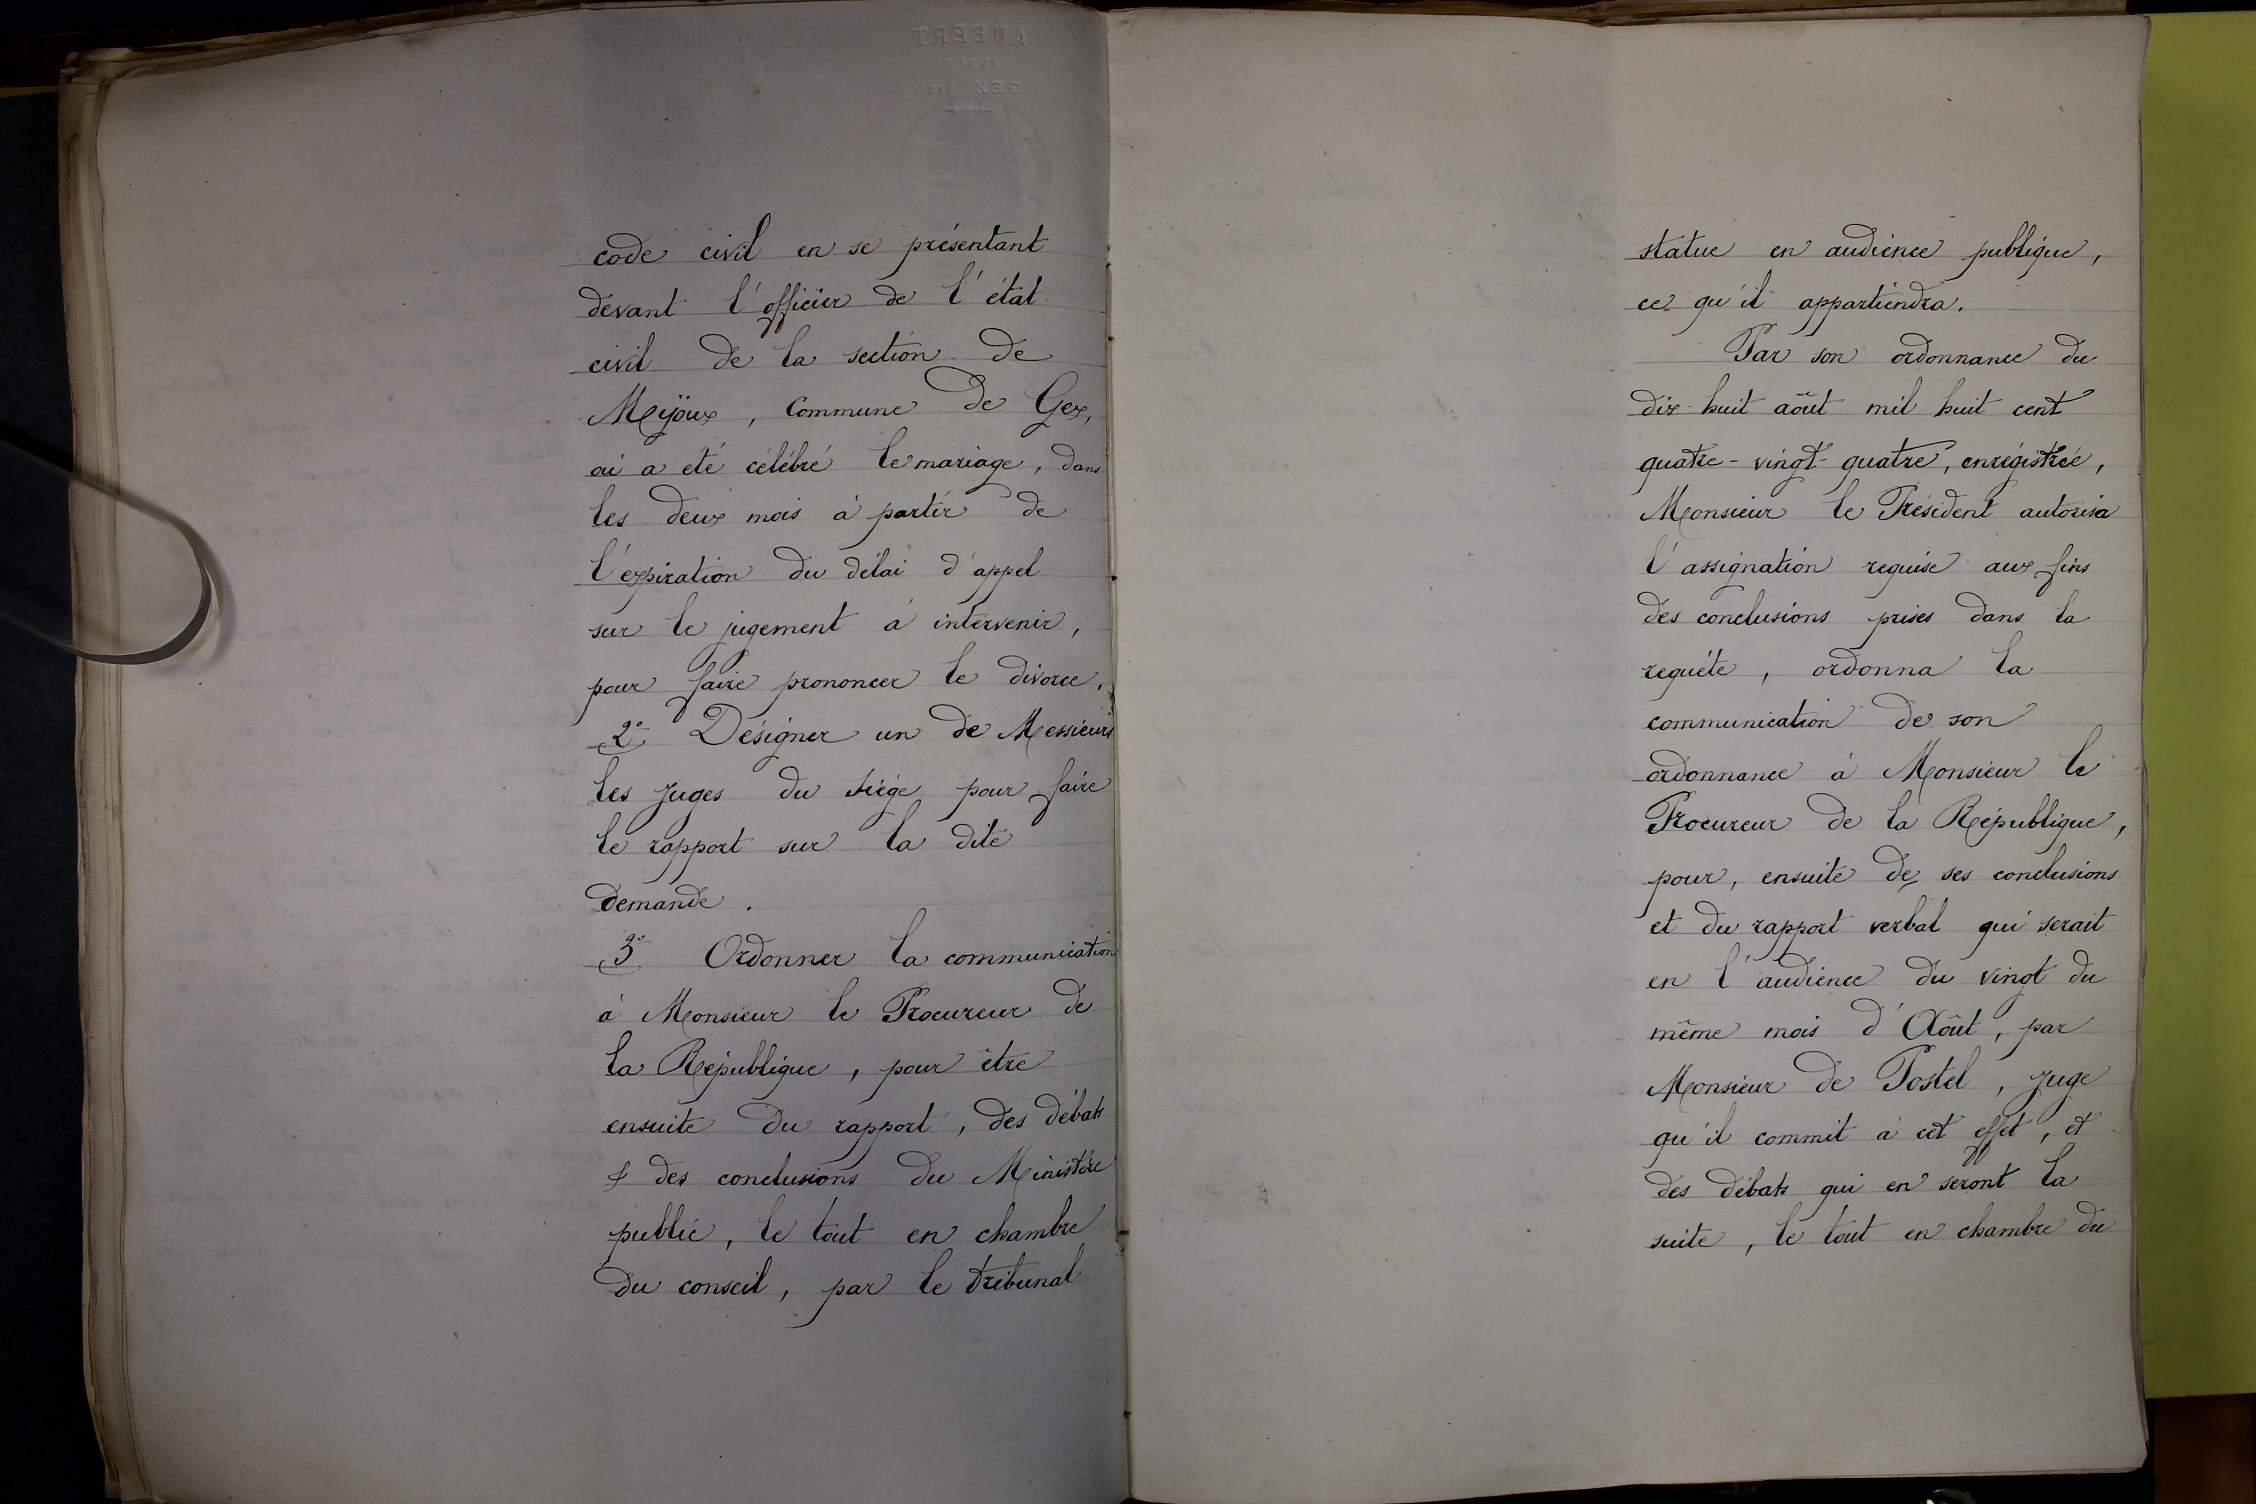 code civil en se présentant
devant l'officier de l'état
civil de la section de
Mijoux, Commune de Gex,
où a été célébré le mariage, dans
les deux mois à partir de
l'expiration du délai d'appel
sur le jugement à intervenir,
pour faire prononcer le divorce.
2° Désigner un de Messieurs
les Juges du siége pour faire
le rapport sur la dite
demande.
3° Ordonner la communication
à Monsieur le Procureur de
la République, pour être
ensuite du rapport, des débats
& des conclusions du Ministère
public, le tout en chambre
du conseil, par le tribunal
AUBERT
GEX
statué en audience publique,
ce qu'il appartiendra.
Par son ordonnance du
dix-huit août mil huit cent
quatre-vingt-quatre, enregistrée,
Monsieur le Président autorisa
l'assignation requise aux fins
des conclusions prises dans la
requête, ordonna la
communication de son
ordonnance à Monsieur le
Procureur de la République,
pour, ensuite de ses conclusions
et du rapport verbal qui serait
en l'audience du vingt du
même mois d'Août, par
Monsieur de Postel, Juge
qu'il commit à cet effet, et
des débats qui en seront la
suite, le tout en chambre du